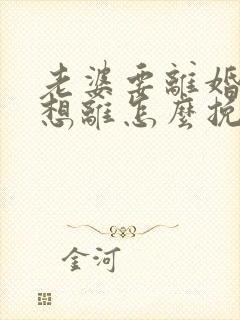 老婆要離婚
想離怎麼挽
金河